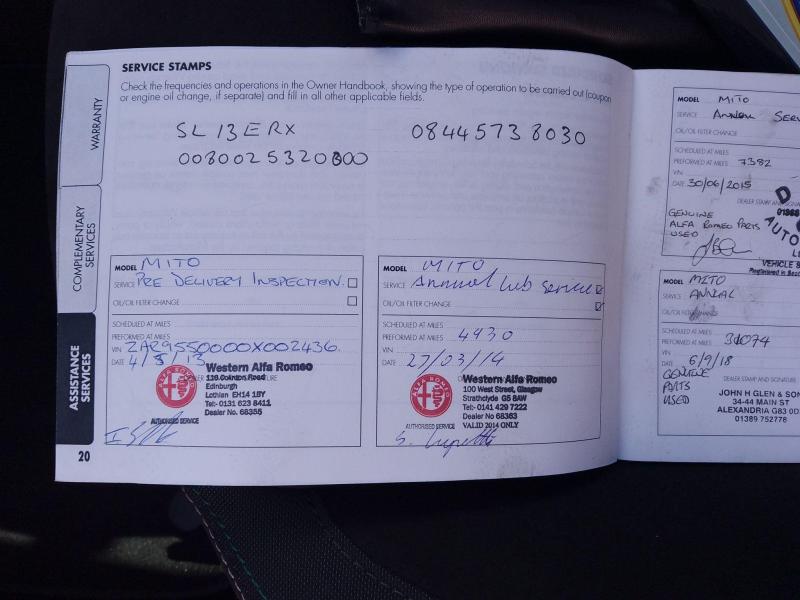 SERVICE STAMPS
Check the frequencies and operations in the Owner Handbook, showing the type of operation to be carried out (coupon
or engine oil change, if separate) and fill in all other applicable fields.
SL 13 ERX
0080025320800
08445738030
WARRANTY
COMPLEMENTARY
SERVICES
ASSISTANCE
SERVICES
MODEL MITO
SERVICE PRE DELIVERY INSPECTION.
OIL/OIL FILTER CHANGE
SCHEDULED AT MILES
PREFORMED AT MILES
VIN ZAR9550000X002436.
DATE 4/5/13
Western Alfa Romeo
Edinburgh
Lothian EH14 1BY
Tel:- 0131 623 8411
Dealer No. 68355
ALFA ROMEO
AUTHORISED SERVICE
20
MODEL MITO
SERVICE Annual lub service
OIL/OIL FILTER CHANGE
SCHEDULED AT MILES
PREFORMED AT MILES 4930
VIN
DATE 27/03/14
Western Alfa Romeo
100 West Street, Glasgow
Strathclyde G5 8AW
Tel:- 0141 429 7222
Dealer No 68363
VALID 2014 ONLY
ALFA ROMEO
AUTHORISED SERVICE
MODEL MITO
SERVICE ANNUAL SERV
OIL/OIL FILTER CHANGE
SCHEDULED AT MILES
PREFORMED AT MILES 7382
VIN
DATE 30/06/2015
DEALER STAMP AND SIGNA
GENUINE
ALFA ROMEO PARTS
USED
D
AUTO
VEHICLE S
MODEL MITO
SERVICE ANNUAL
OIL/OIL FILTER CHANGE
SCHEDULED AT MILES
PREFORMED AT MILES 31074
VIN
DATE 6/9/18
DEALER STAMP AND SIGNATURE
GENUINE
PARTS
USED
JOHN H GLEN & SON
34-44 MAIN ST
ALEXANDRIA G83 0D
01389 752778